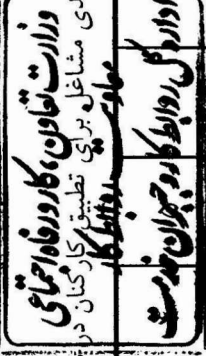 وزارت تعاون، کار و رفاه اجتماعی
دی مشاغل برای تطبیق کارکنان در
روابط کار
اداره کل روابط کار و جبران خدمت